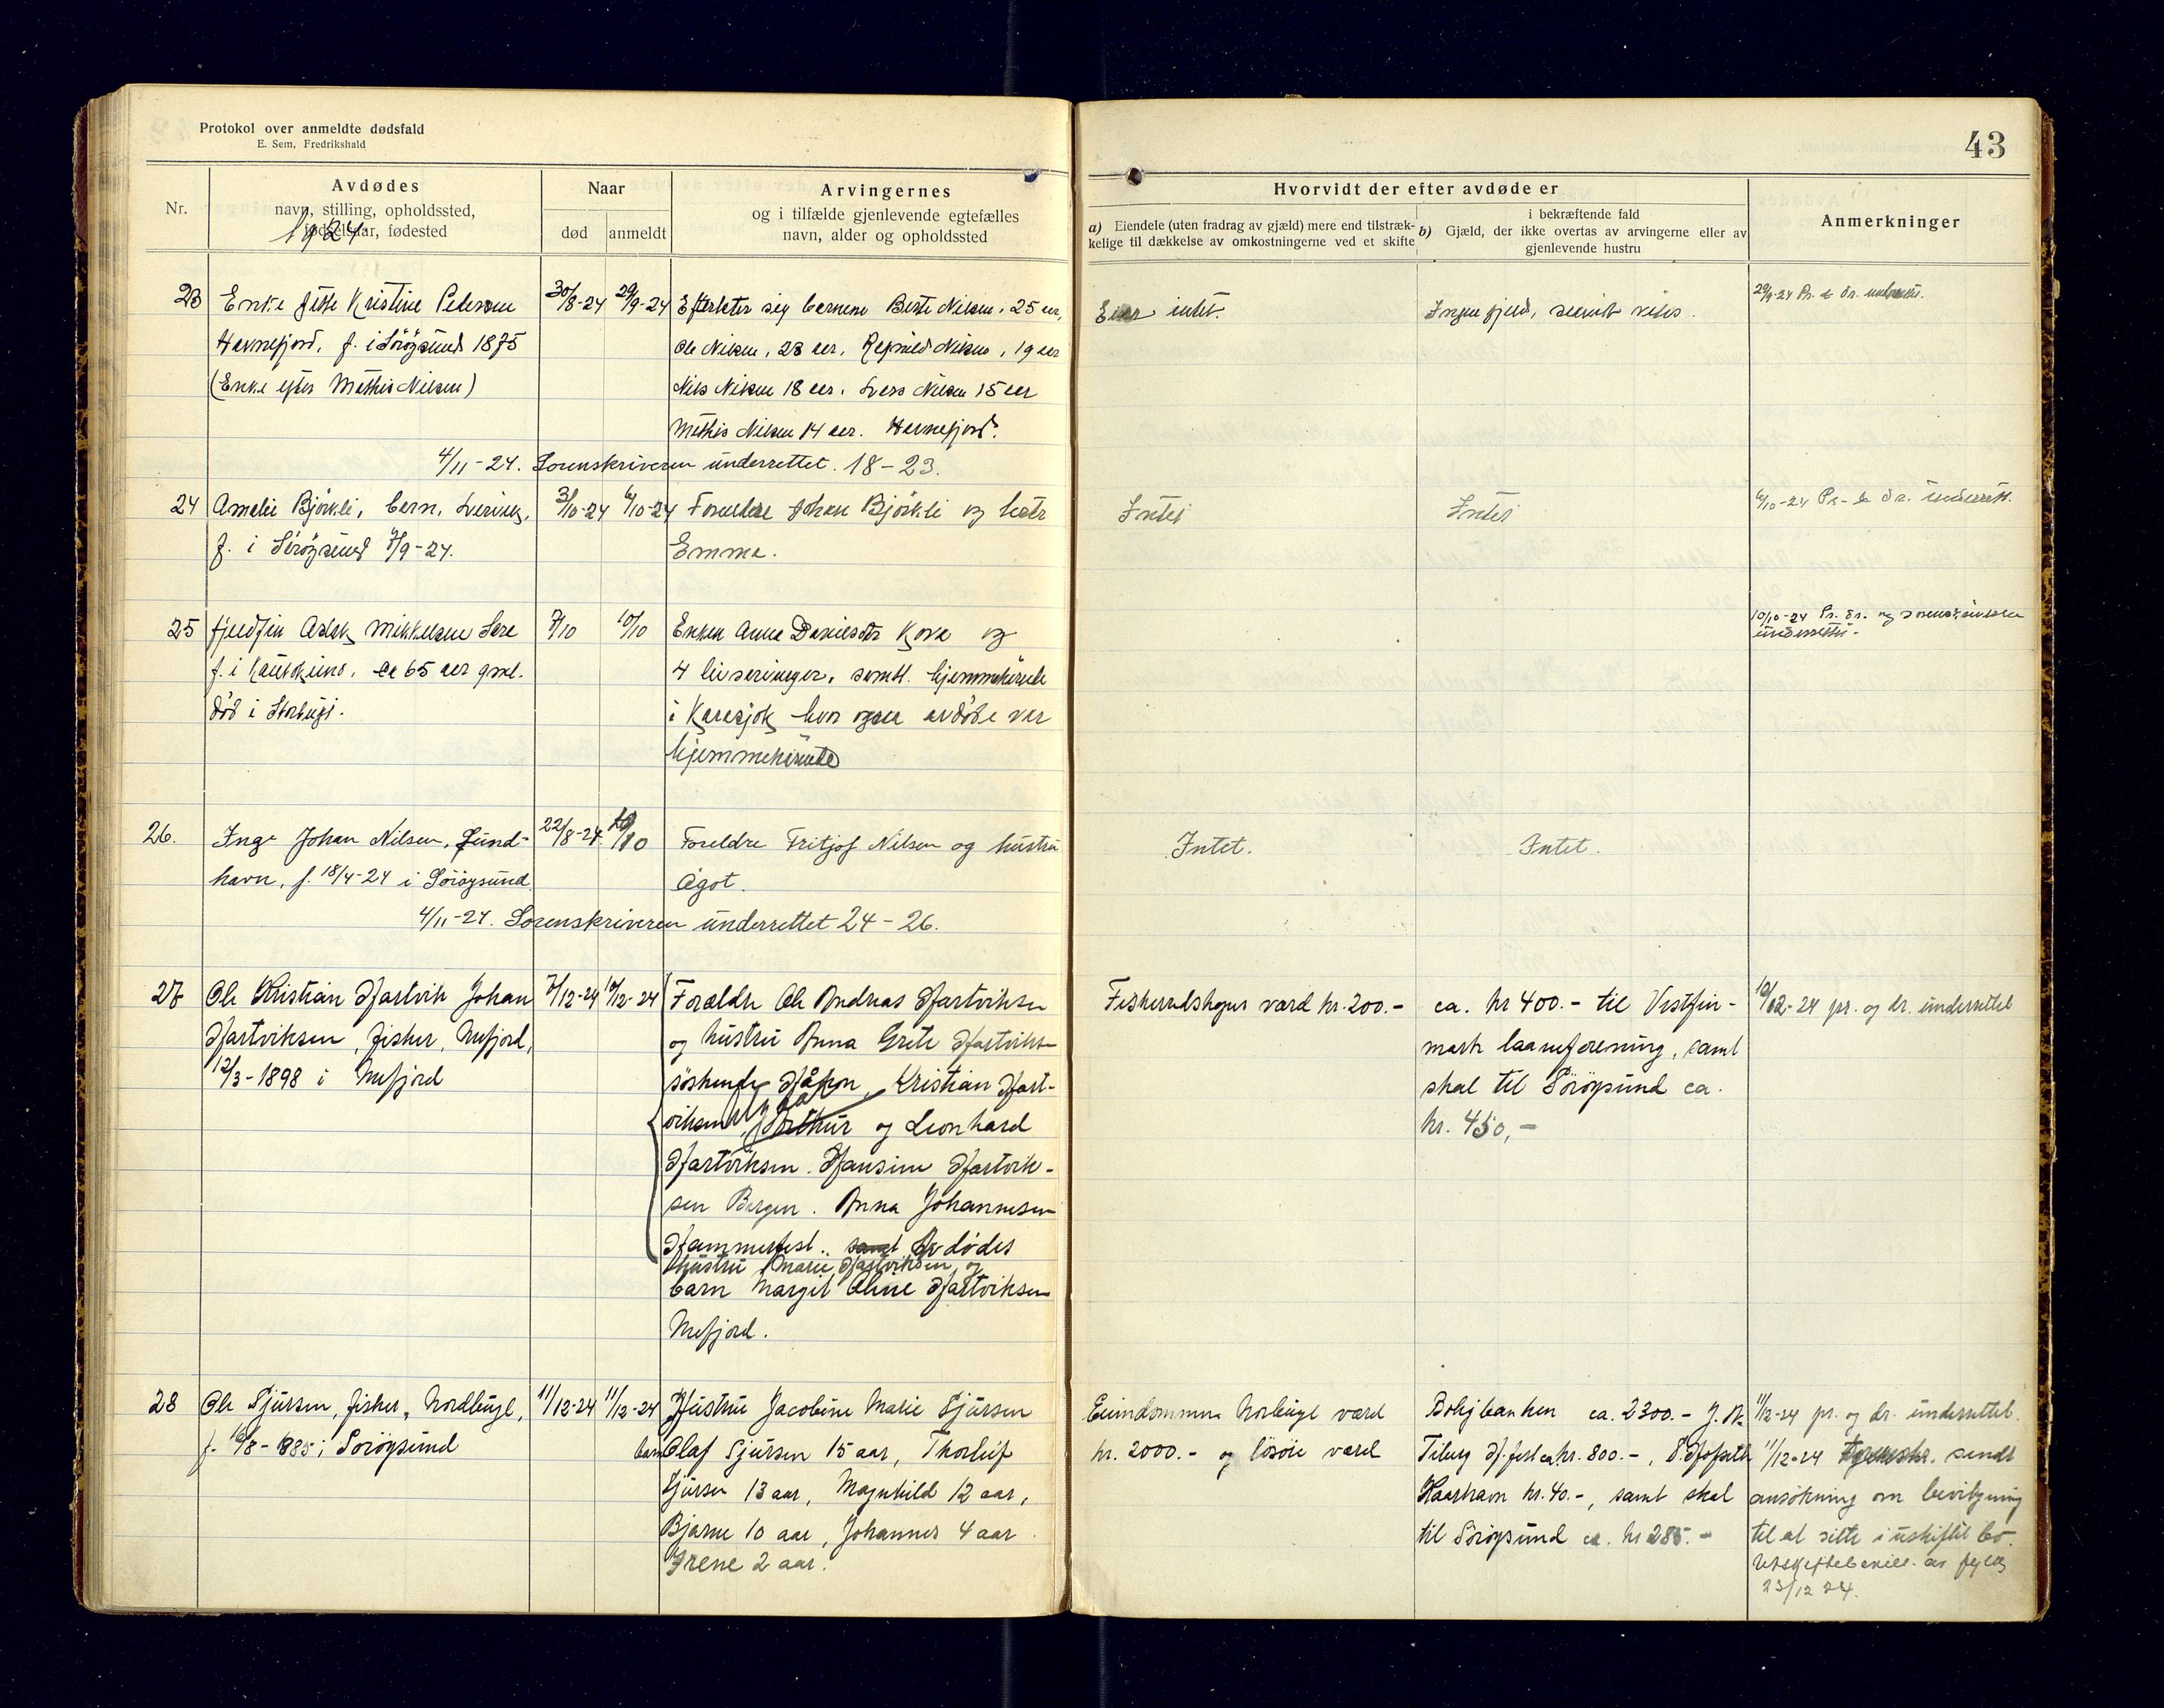 Protokol over anmeldte dødsfald
E. Sem, Fredrikshald
43
Nr.
Avdødes
navn, stilling, opholdssted,
fødselsaar, fødested
1924
Naar
død
anmeldt
Arvingernes
og i tilfælde gjenlevende egtefælles
navn, alder og opholdssted
Hvorvidt der efter avdøde er
a) Eiendele (uten fradrag av gjæld) mere end tilstræk-
kelige til dækkelse av omkostningerne ved et skifte
i bekræftende fald
b) Gjæld, der ikke overtas av arvingerne eller av
gjenlevende hustru
Anmerkninger
23 Enke Kristine Pedersen 30/8-24 29/9-24 Efterlater sig barnene Berit Nilsen, 25 aar,
Havnefjord, f. i Sörøysund 1875 Ole Nilsen, 23 aar, Ragnvald Nilsen, 19 aar
(Enke efter Mathis Nilsen) Nils Nilsen 18 aar, Lars Nilsen 15 aar
Mathis Nilsen 14 aar. Havnefjord.
Eier intet.
Ingen gjeld, saavidt vites.
29/9-24 Pr. & dr. underrettet.
4/11-24. Sorenskriveren underrettet. 18-23.
24 Amalie Björkli, barn, 3/10-24 6/10-24 Foreldre Johan Björkli og hustr
f. i Sörøysund /9-24. Emma.
Intet
Intet
6/10-24 Pr. & dr. underrett.
25 fjeldfin Aslak Mikkelsen Sara 7/10 10/10 Enken Anna Danielsdtr og
f. i Kautokeino, ca 65 aar gml. 4 livsarvinger, samtl. hjemmehörende
död i Storbugt. i Karasjok hvor ogsaa avdöde var
hjemmehörende
10/10-24 Pr. dr. og sorenskriveren
underrettet.
26. Inga Johan Nilsen, Sund- 22/8-24 /10 Foreldre Fritjof Nilsen og hustru
havn, f. 18/4-24 i Sörøysund Ågot.
Intet.
Intet.
4/11-24. Sorenskriveren underrettet 24-26.
27 Ole Kristian Hartvik Johan 7/12-24 10/12-24 Forældre Ole Andreas Hartviksen
Hartviksen, fisker, Mefjord, og hustru Anna Grete Hartviksen
12/3-1898 i Mefjord söskende Håkon, Kristian Hart-
viksen, Arthur og Leonhard
Hartviksen. Hansine Hartvik-
sen Bergen. Anna Johannesen
Hammerfest. samt Avdödes
hustru Marie Hartviksen og
barn Margit Oline Hartviksen
Mefjord.
Fiskeredskaper værd kr. 200.-
ca. kr 400.- til Vestfin-
mark laaneforening, samt
skat til Sörøysund ca.
kr. 450,-
10/12-24 pr. og dr. underrettet
28 Ole Sjursen, fisker, Nordbugt, 11/12-24 11/12-24 Hustru Jacobine Marie Sjursen
f. 16/8-1885 i Sörøysund barn Olaf Sjursen 15 aar, Thorleif
Sjursen 13 aar, Magnhild 12 aar,
Bjarne 10 aar, Johannes 4 aar
Irene 2 aar.
Eiendommen Norbugt værd
kr. 2000.- og lösöie værd
Boligbanken ca. 2300.- J. N.
Tiberg H.fest ca kr. 800.-,
Kaarhavn kr. 40.-, samt skat
til Sörøysund ca. kr 285.-
11/12-24 pr. og dr. underrettet.
11/12-24 sorenskr. sendt
ansökning om bevilgning
til at sitte i uskiftet bo.
23/12 24.